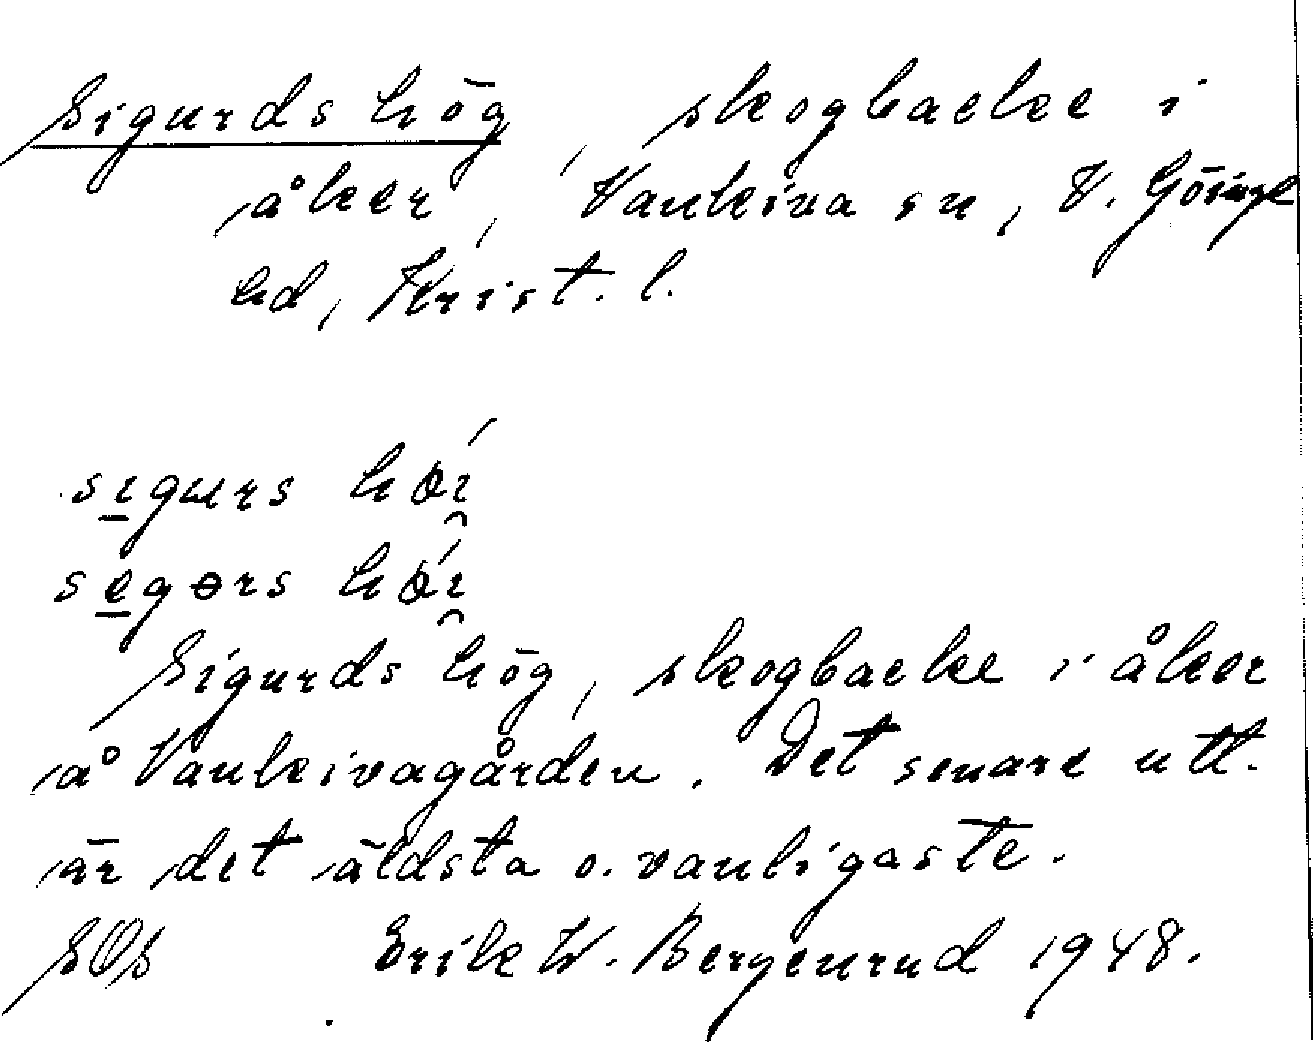 Sigurds hög, skogbacke i
åker, Vankiva sn, V. Göinge
hd, Krist. l.
sıgurs höı́
segɵrs höı́
Sigurds hög, skogbacke i åker
å Vankivagården. Det senare utt.
är det äldsta o. vanligaste.
SOS Erik W. Bergenrud 1948.